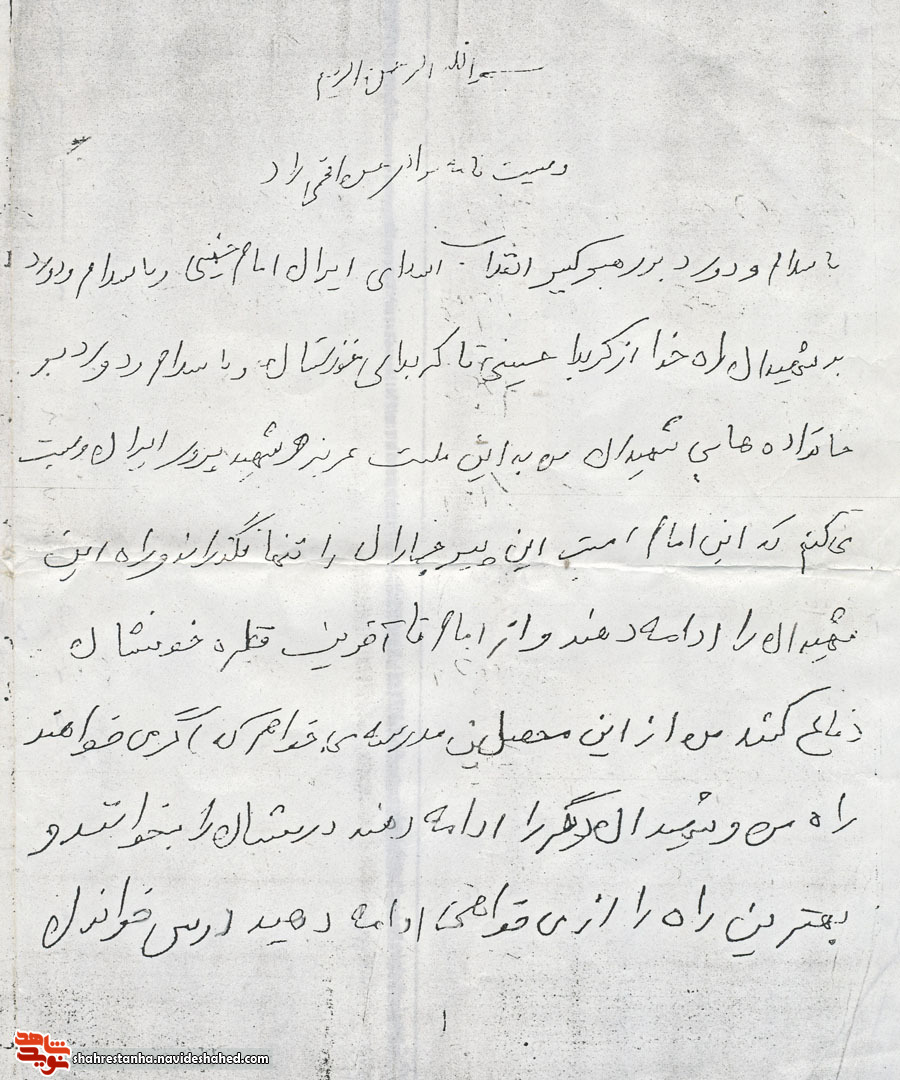 بسم الله الرحمن الرحیم
وصیت نامه
با سلام و درود بر رهبر کبیر انقلاب اسلامی ایران امام خمینی و با سلام و درود
بر شهیدان راه خدا از کربلا حسینی تا کربلای خوزستان و با سلام و درود بر
خانواده هایی شهیدان من به این ملت عزیز شهید پرور ایران وصیت
می کنم که این امام امت این پیر جماران را تنها نگذارند و راه این
شهیدان را ادامه دهند و از امام تا آخرین قطره خونشان
دفاع کنند من از این محصلین مدرسه می خواهم که اگر می خواهند
راه من و شهیدان دیگر را ادامه دهند درسشان را بخوانند و
بهترین راه را ادامه دهید درس خواندن
۱
شاهد
نوید
shahrestanha.navideshahed.com